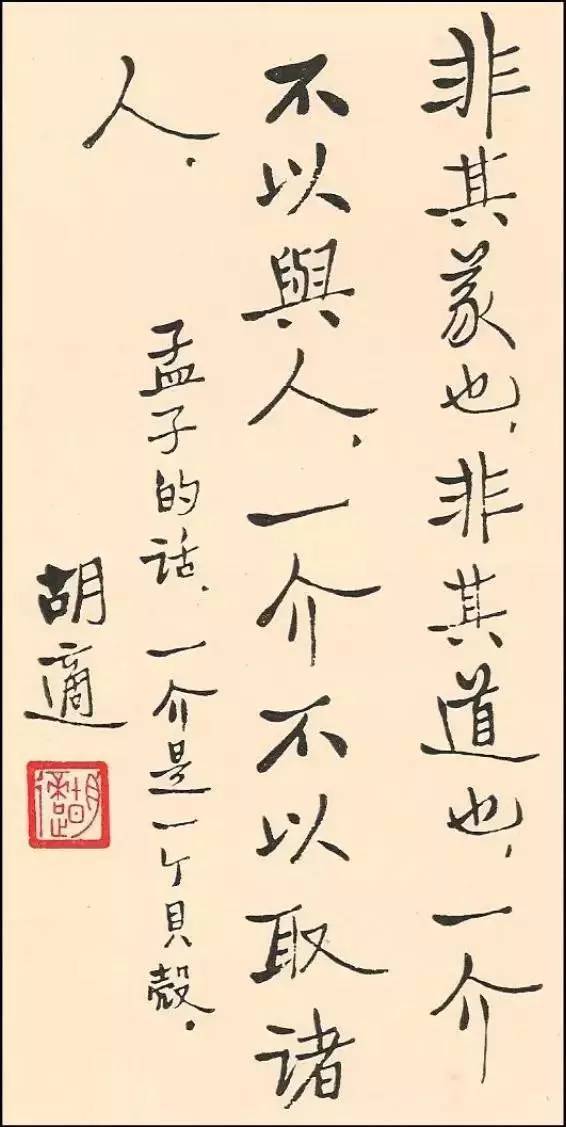 非其義也，非其道也，一介
不以與人，一介不以取諸
人．
孟子的話，一介是一个貝殼．
胡適
胡適